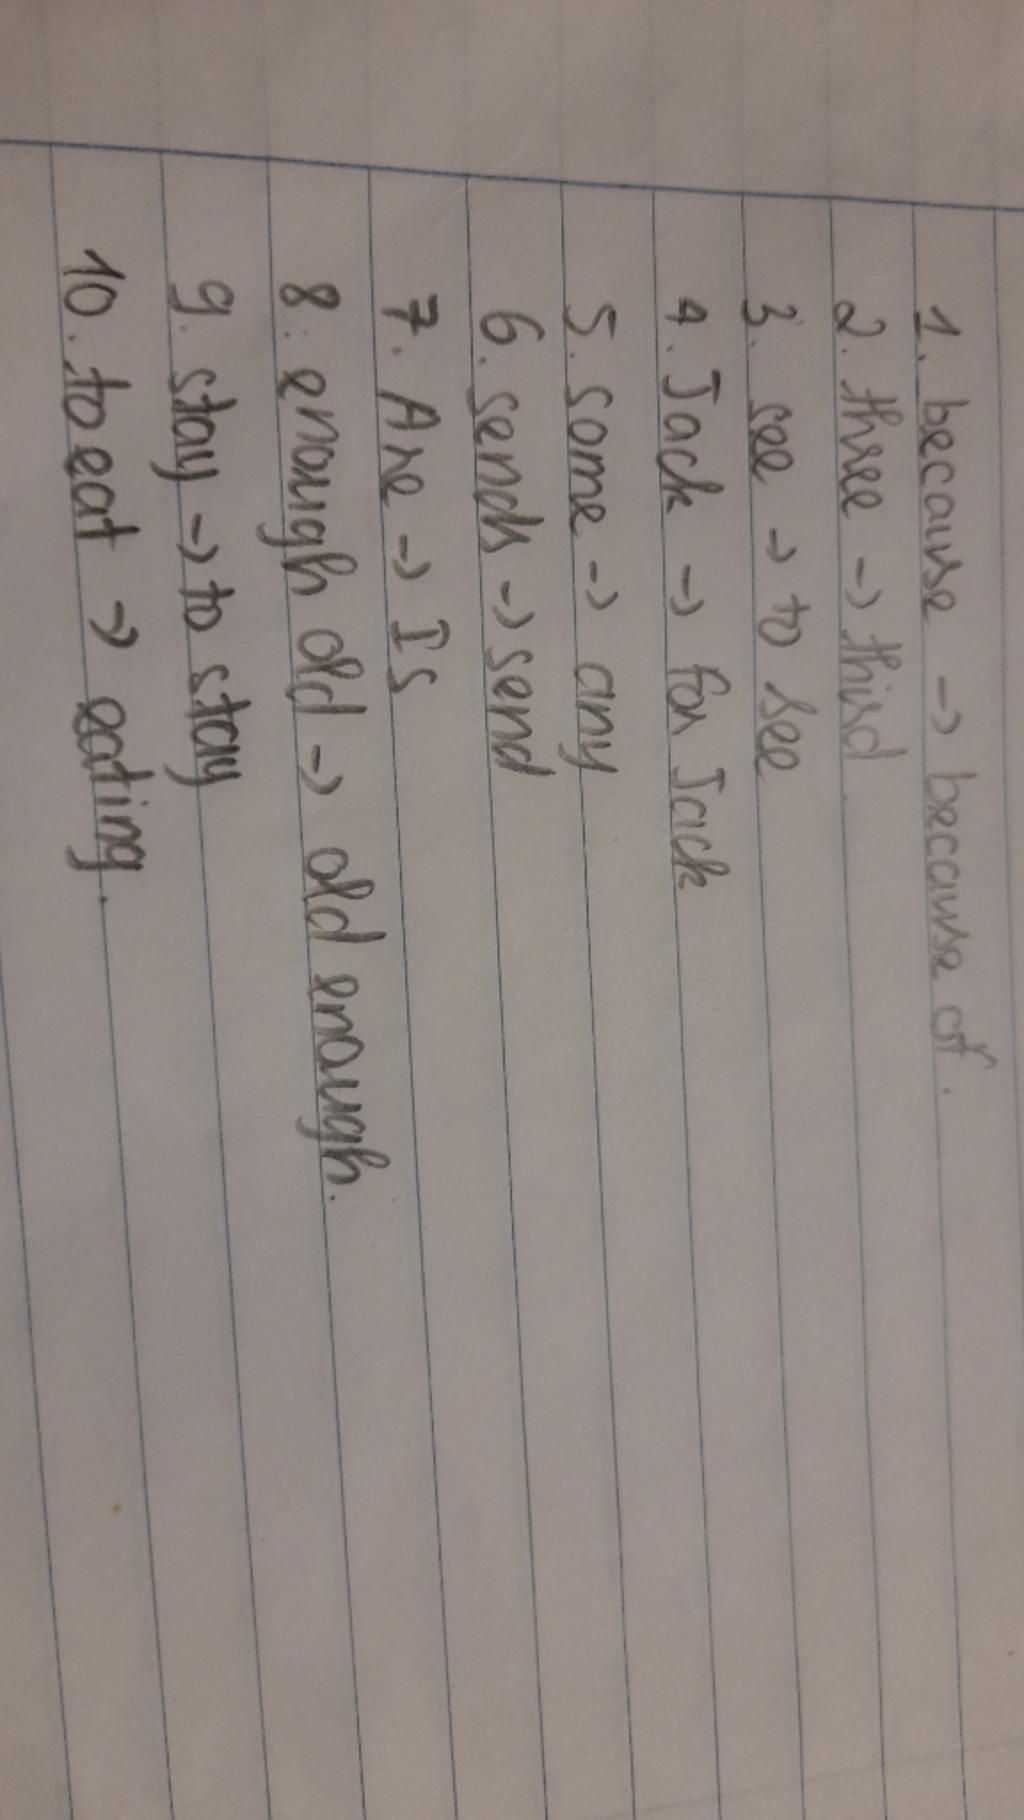 1. because → because of.
2. three → third.
3. see → to see
4. Jack → for Jack
5. some → any
6. sends → send
7. Are → Is
8. enough old → old enough.
9. stay → to stay
10. to eat → eating.